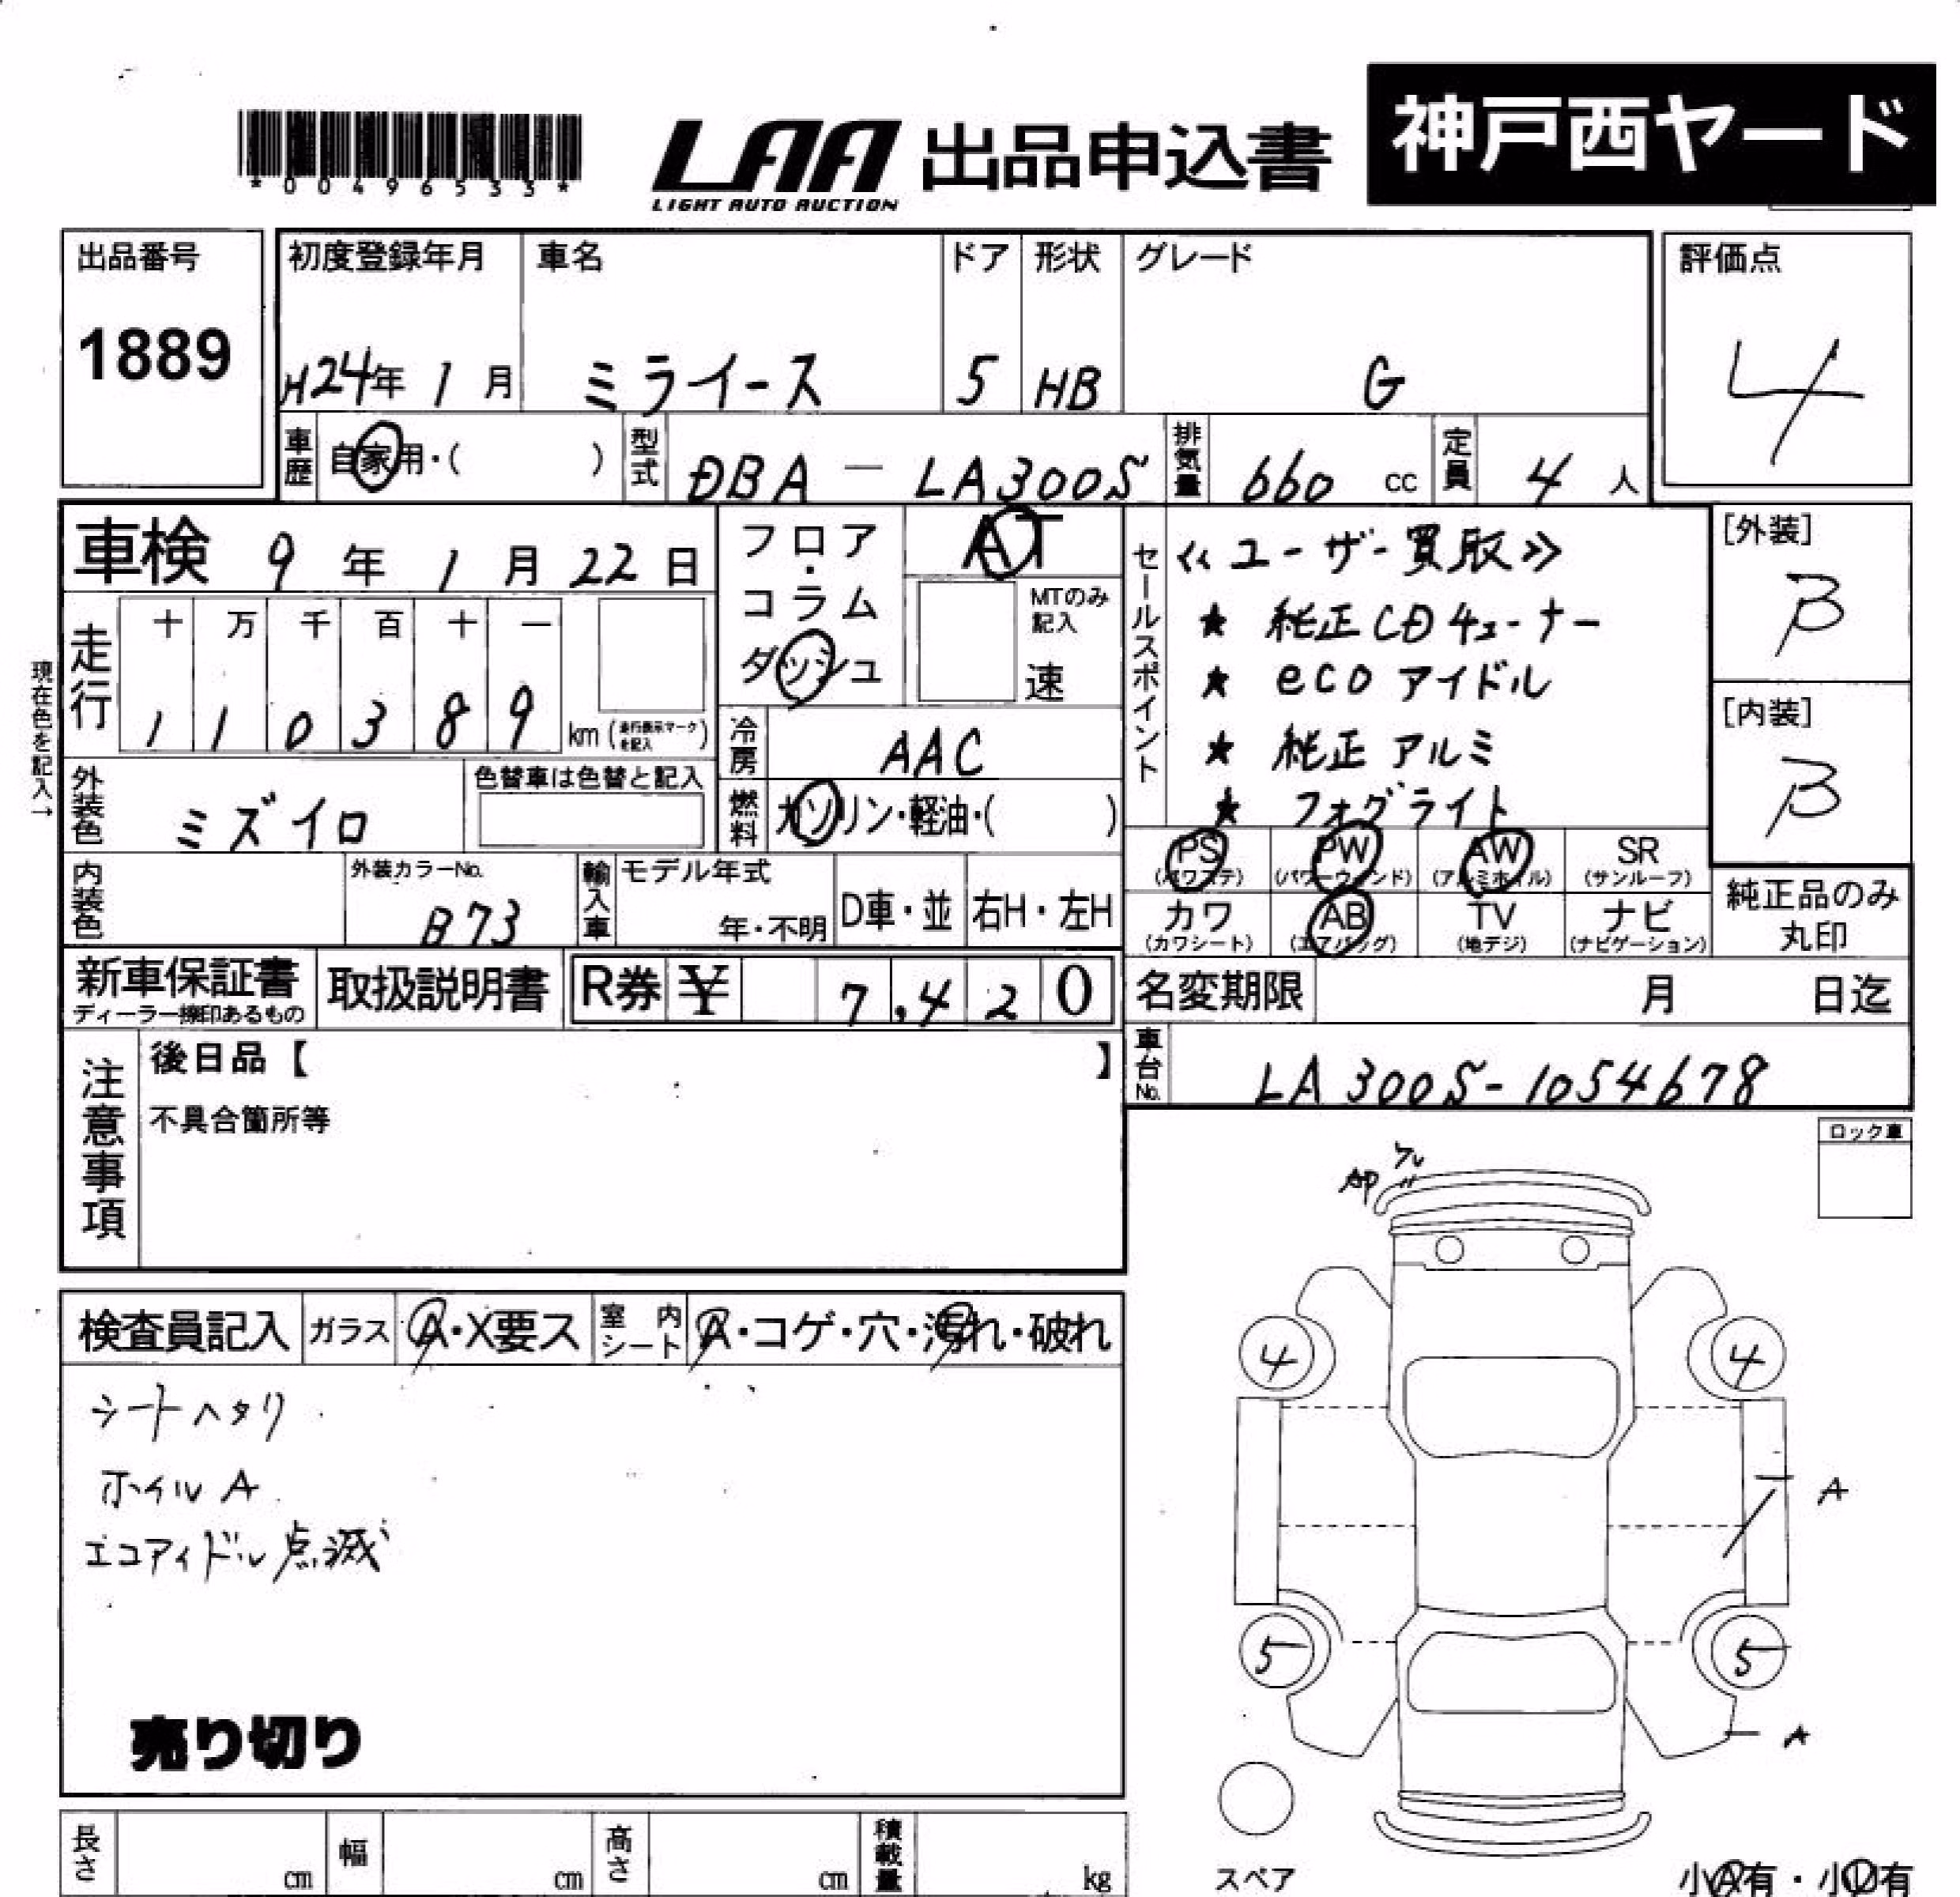 *00496533*
LAA 出品申込書 神戸西ヤード
LIGHT AUTO AUCTION
出品番号 初度登録年月 車名 ドア 形状 グレード 評価点
1889 H24年 1月 ミライース 5 HB G 4
車歴 自家用・( ) 型式 DBA-LA300S 排気量 660 cc 定員 4 人
車検 9年 1月 22日
フロア・コラム
ダッシュ
AT
MTのみ記入
速
セールスポイント
≪ユーザー買取≫
★ 純正CDチューナー
★ eco アイドル
★ 純正アルミ
★ フォグライト
[外装]
B
[内装]
B
現在色を記入→
走行 十 万 千 百 十 一
1 1 0 3 8 9 km (走行表示マークを記入)
冷房 AAC
外装色 ミズイロ 色替車は色替と記入
燃料 ガソリン・軽油・( )
PS (パワステ) PW (パワーウィンド) AW (アルミホイル) SR (サンルーフ)
カワ (カワシート) AB (エアバッグ) TV (地デジ) ナビ (ナビゲーション)
純正品のみ
丸印
内装色 外装カラーNo. B73 輸入車 モデル年式 年・不明 D車・並 右H・左H
新車保証書 取扱説明書 R券 ¥ 7,420
ディーラー捺印あるもの
名変期限 月 日迄
注意事項
後日品【 】
不具合箇所等
車台No. LA300S-1054678
ロック車
AP
検査員記入 ガラス A・X要ス 室内シート A・コゲ・穴・汚れ・破れ
シートヘタリ
ホイルA
エコアイドル点滅
売り切り
4 4
A
5 5
A
スペア
小A有・小U有
長さ cm 幅 cm 高さ cm 積載量 kg